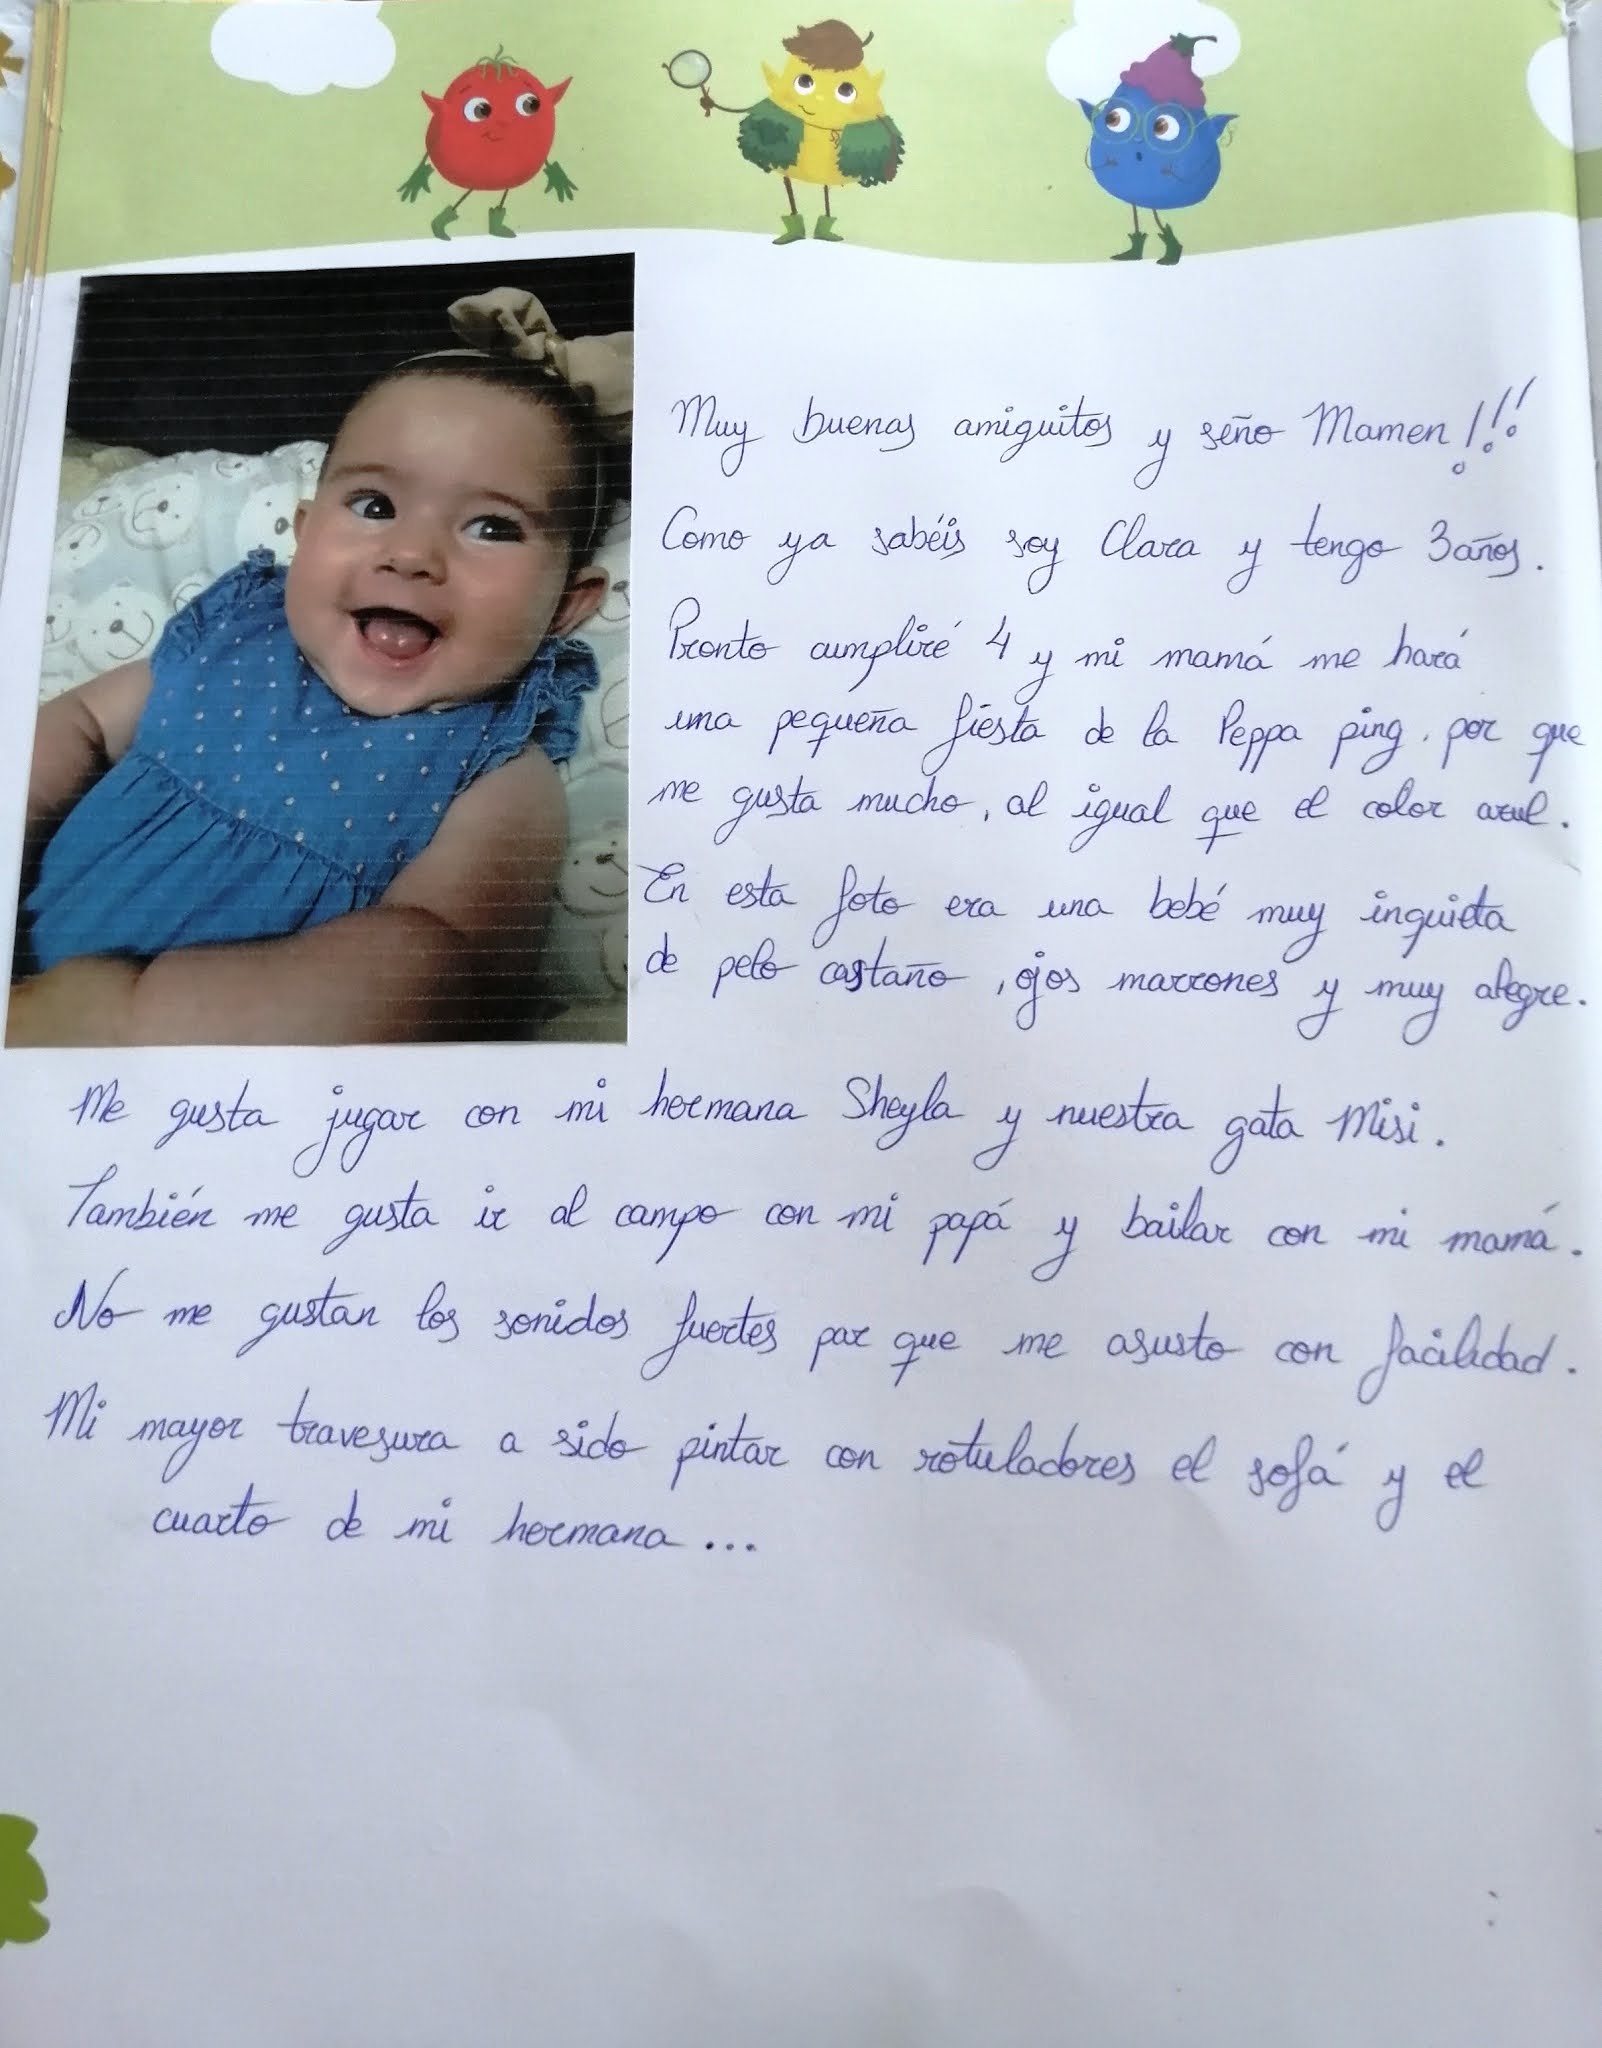 Muy buenas amiguitos y seño Mamen!!!
Como ya sabéis soy Clara y tengo 3 años.
Pronto cumpliré 4 y mi mamá me hará
una pequeña fiesta de la Peppa ping, por que
me gusta mucho, al igual que el color azul.
En esta foto era una bebé muy inquieta
de pelo castaño, ojos marrones y muy alegre.
Me gusta jugar con mi hermana Sheyla y nuestra gata Misi.
También me gusta ir al campo con mi papá y bailar con mi mamá.
No me gustan los sonidos fuertes por que me asusto con facilidad.
Mi mayor travesura a sido pintar con rotuladores el sofá y el
cuarto de mi hermana...